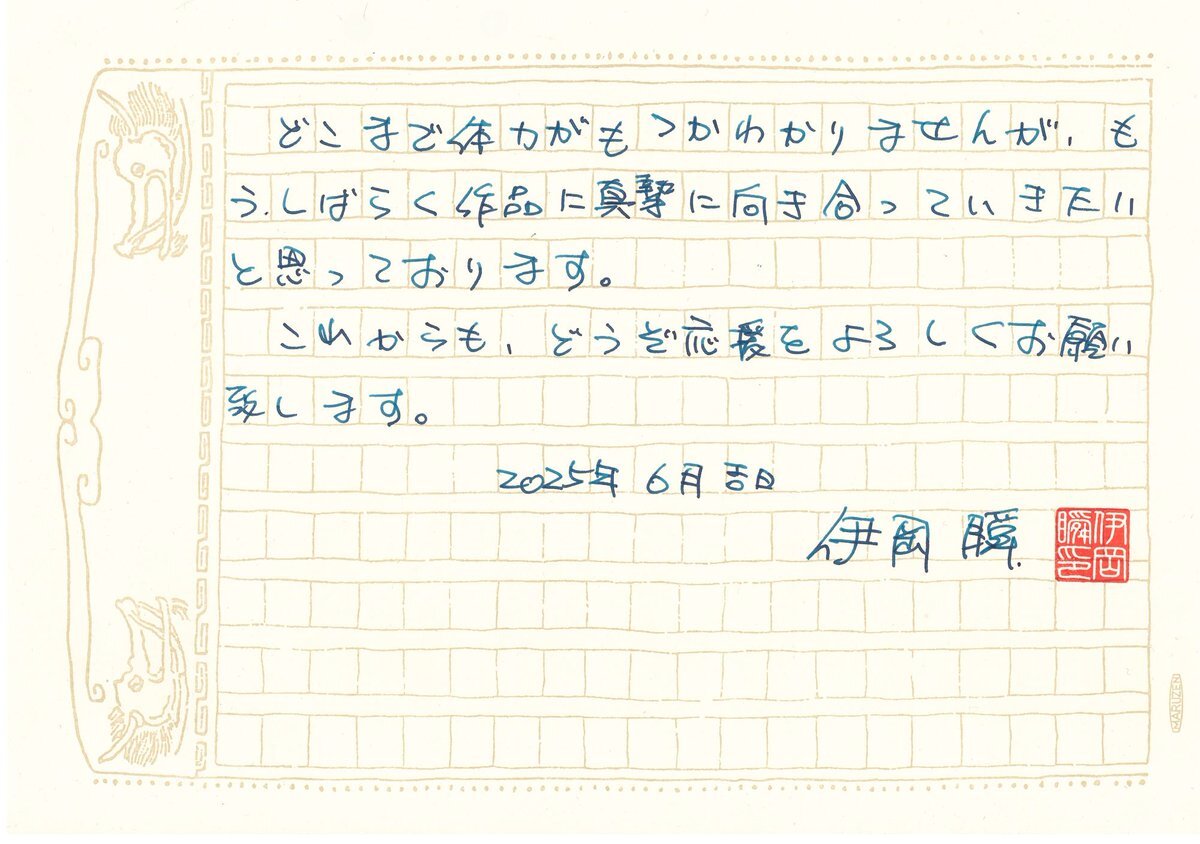 どこまで体力がもつかわかりませんが、も
う、しばらく作品に真摯に向き合っていきたい
と思っております。
これからも、どうぞ応援をよろしくお願い
致します。
2025年 6月吉日
伊岡 瞬
伊岡瞬印
MARUZEN